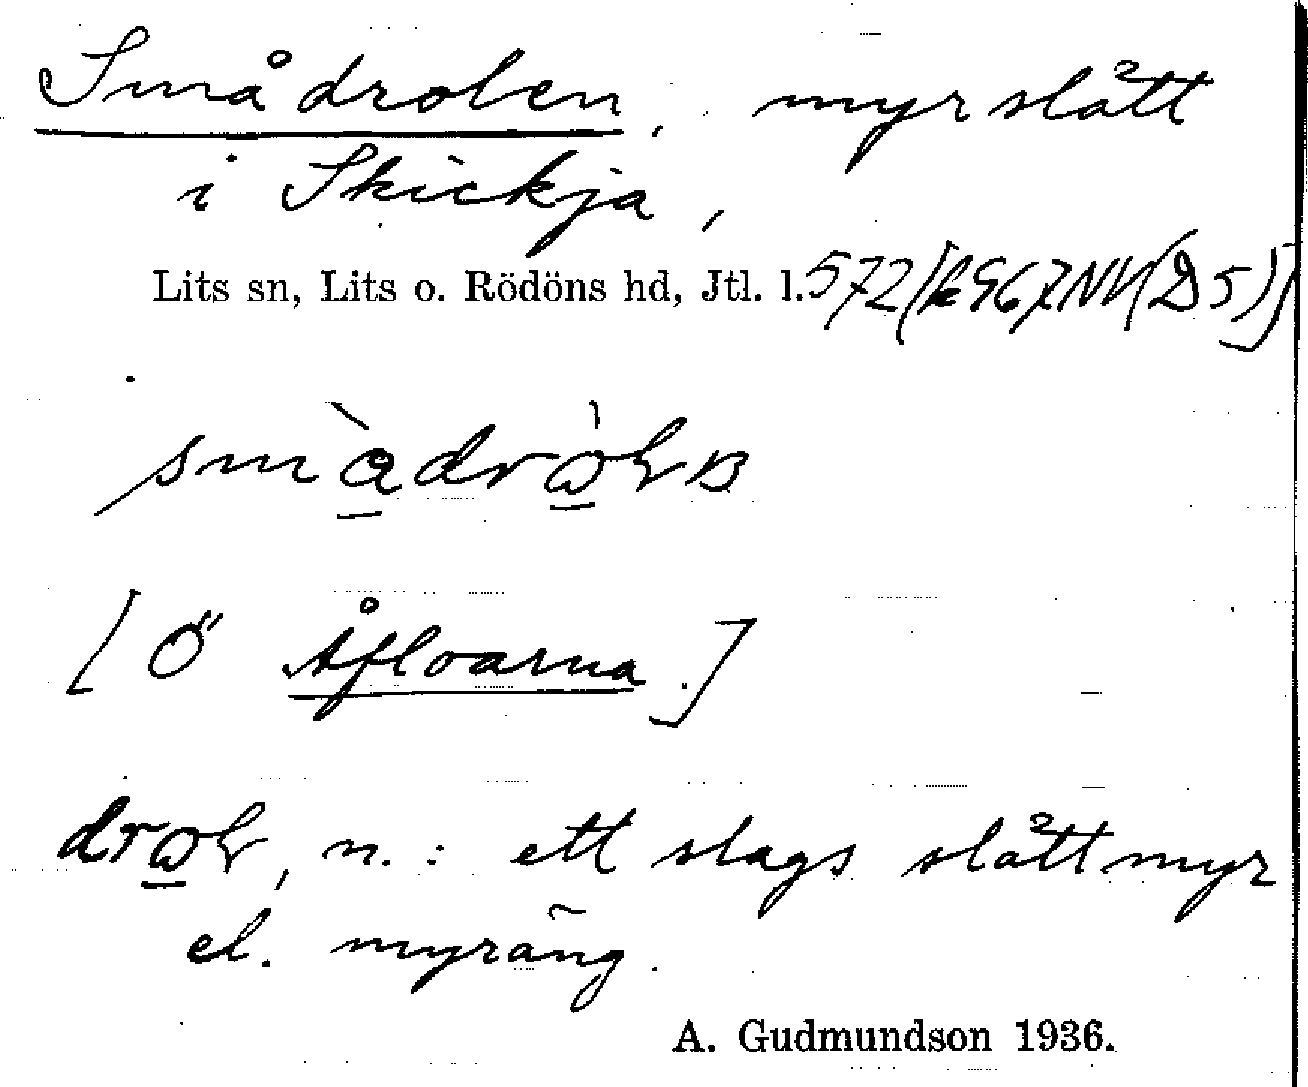 Smådrolen, myrslått
i Skickja,
Lits sn, Lits o. Rödöns hd, Jtl. l. 572 (k 967 NV (D 5))
[Ö Åfloarna.]
n.: ett slags slåttmyr
el. myräng.
A. Gudmundson 1936.